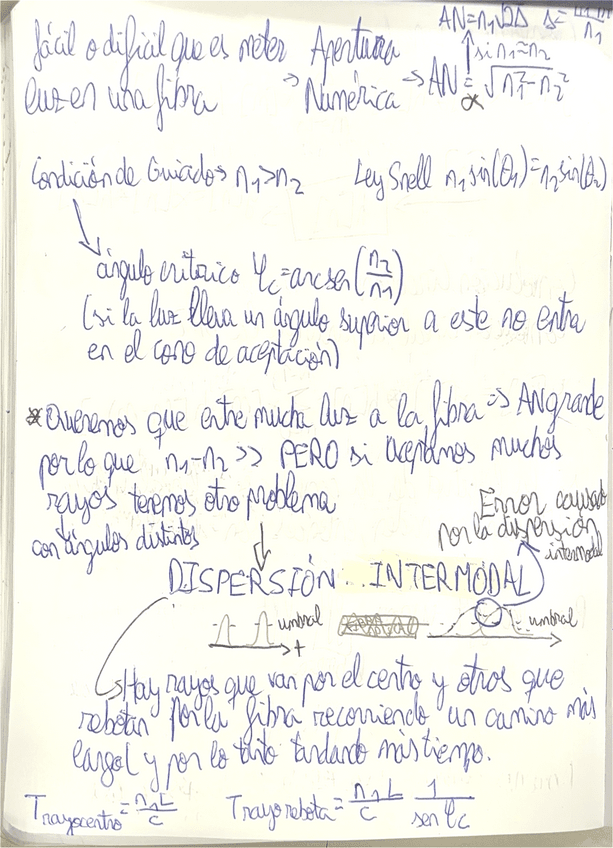 AN=n₁√2Δ Δ= n₁
fácil o dificil que es meter Apertura si n₁≈n₂
luz en una fibra ⇒ Numérica ⇒ AN = √n₁²-n₂²
Condición de Guiado→ n₁>n₂ Ley Snell n₁ sin(θ₁)=n₂ sin(θ₂)
ángulo crítico φc=arcsen(n₂/n₁)
(si la luz lleva un ángulo superior a este no entra
en el cono de aceptación)
*Queremos que entre mucha luz a la fibra ⇒ AN grande
por lo que n₁-n₂ >> PERO si aceptamos muchos
rayos tenemos otro problema
con ángulos distintos
Error causado
por la dispersión
intermodal
DISPERSIÓN INTERMODAL
umbral umbral
t
→Hay rayos que van por el centro y otros que
rebotan por la fibra recorriendo un camino más
largo y por lo tanto tardando más tiempo.
T rayo centro = n₁L/c T rayo rebota = n₁L/c 1/sen φc